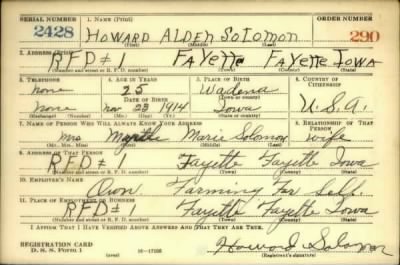 SERIAL NUMBER 1. NAME (Print) ORDER NUMBER
2428 HOWARD ALDEN SOLOMON 290
(First) (Middle) (Last)
2. ADDRESS (Print)
RFD #1 FAYETTE FAYETTE IOWA
(Number and street or R. F. D. number) (Town) (County) (State)
3. TELEPHONE 4. AGE IN YEARS 5. PLACE OF BIRTH 6. COUNTRY OF CITIZENSHIP
none 25 Wadena
DATE OF BIRTH (Town or county)
none Nov 23 1914 Iowa U.S.A.
(Exchange) (Number) (Mo.) (Day) (Yr.) (State or country)
7. NAME OF PERSON WHO WILL ALWAYS KNOW YOUR ADDRESS 8. RELATIONSHIP OF THAT PERSON
Mrs Myrtle Marie Solomon wife
(Mr., Mrs., Miss) (First) (Middle) (Last)
9. ADDRESS OF THAT PERSON
RFD #1 Fayette Fayette Iowa
(Number and street or R. F. D. number) (Town) (County) (State)
10. EMPLOYER'S NAME
Own Farming For Self
11. PLACE OF EMPLOYMENT OR BUSINESS
RFD #1 Fayette Fayette Iowa
(Number and street or R. F. D. number) (Town) (County) (State)
I AFFIRM THAT I HAVE VERIFIED ABOVE ANSWERS AND THAT THEY ARE TRUE.
REGISTRATION CARD Howard Solomon
D. S. S. FORM 1 (over) 16—17105 (Registrant's signature)